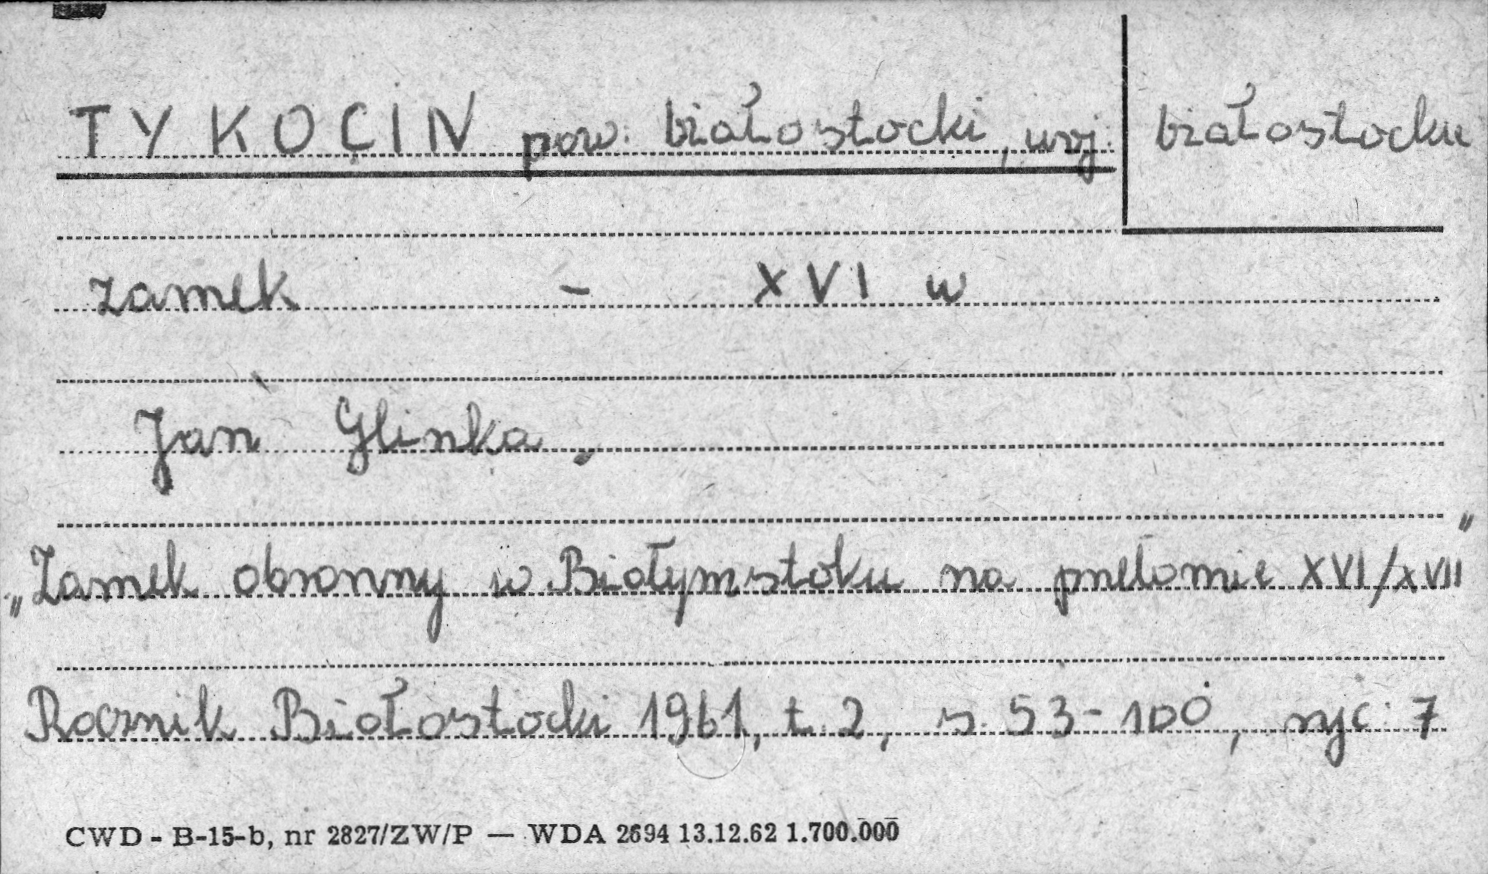 TYKOCIN pow. białostocki, woj. białostockie
zamek - XVI w
Jan Glinka.
„Zamek obronny w Białymstoku na przełomie XVI/XVII"
Rocznik Białostocki 1961, t. 2, s. 53-100, ryc. 7
CWD - B-15-b, nr 2827/ZW/P — WDA 2694 13.12.62 1.700.000